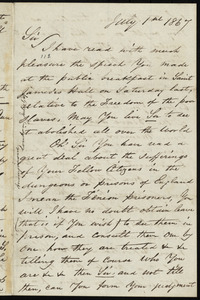 July 1st 1867
Sir
I have read with much
pleasure the Speech You made
at the public breakfast in Saint
James's Hall on Saturday last,
relative to the Freedom of the poor
Slaves. May You live Too to see
it abolished all over the World
Oh! Sir You have read a
great deal about the sufferings
of Your Fellow Citizens in the
dungeons or prisons of England
I mean the Fenian prisoners, You
will I have no doubt obtain leave
that is if You wish to see them in
prison, and consult them One by
One how they are treated & &
telling them of Course Who You
are & & then Sir and not till
then, can You form Your judgment